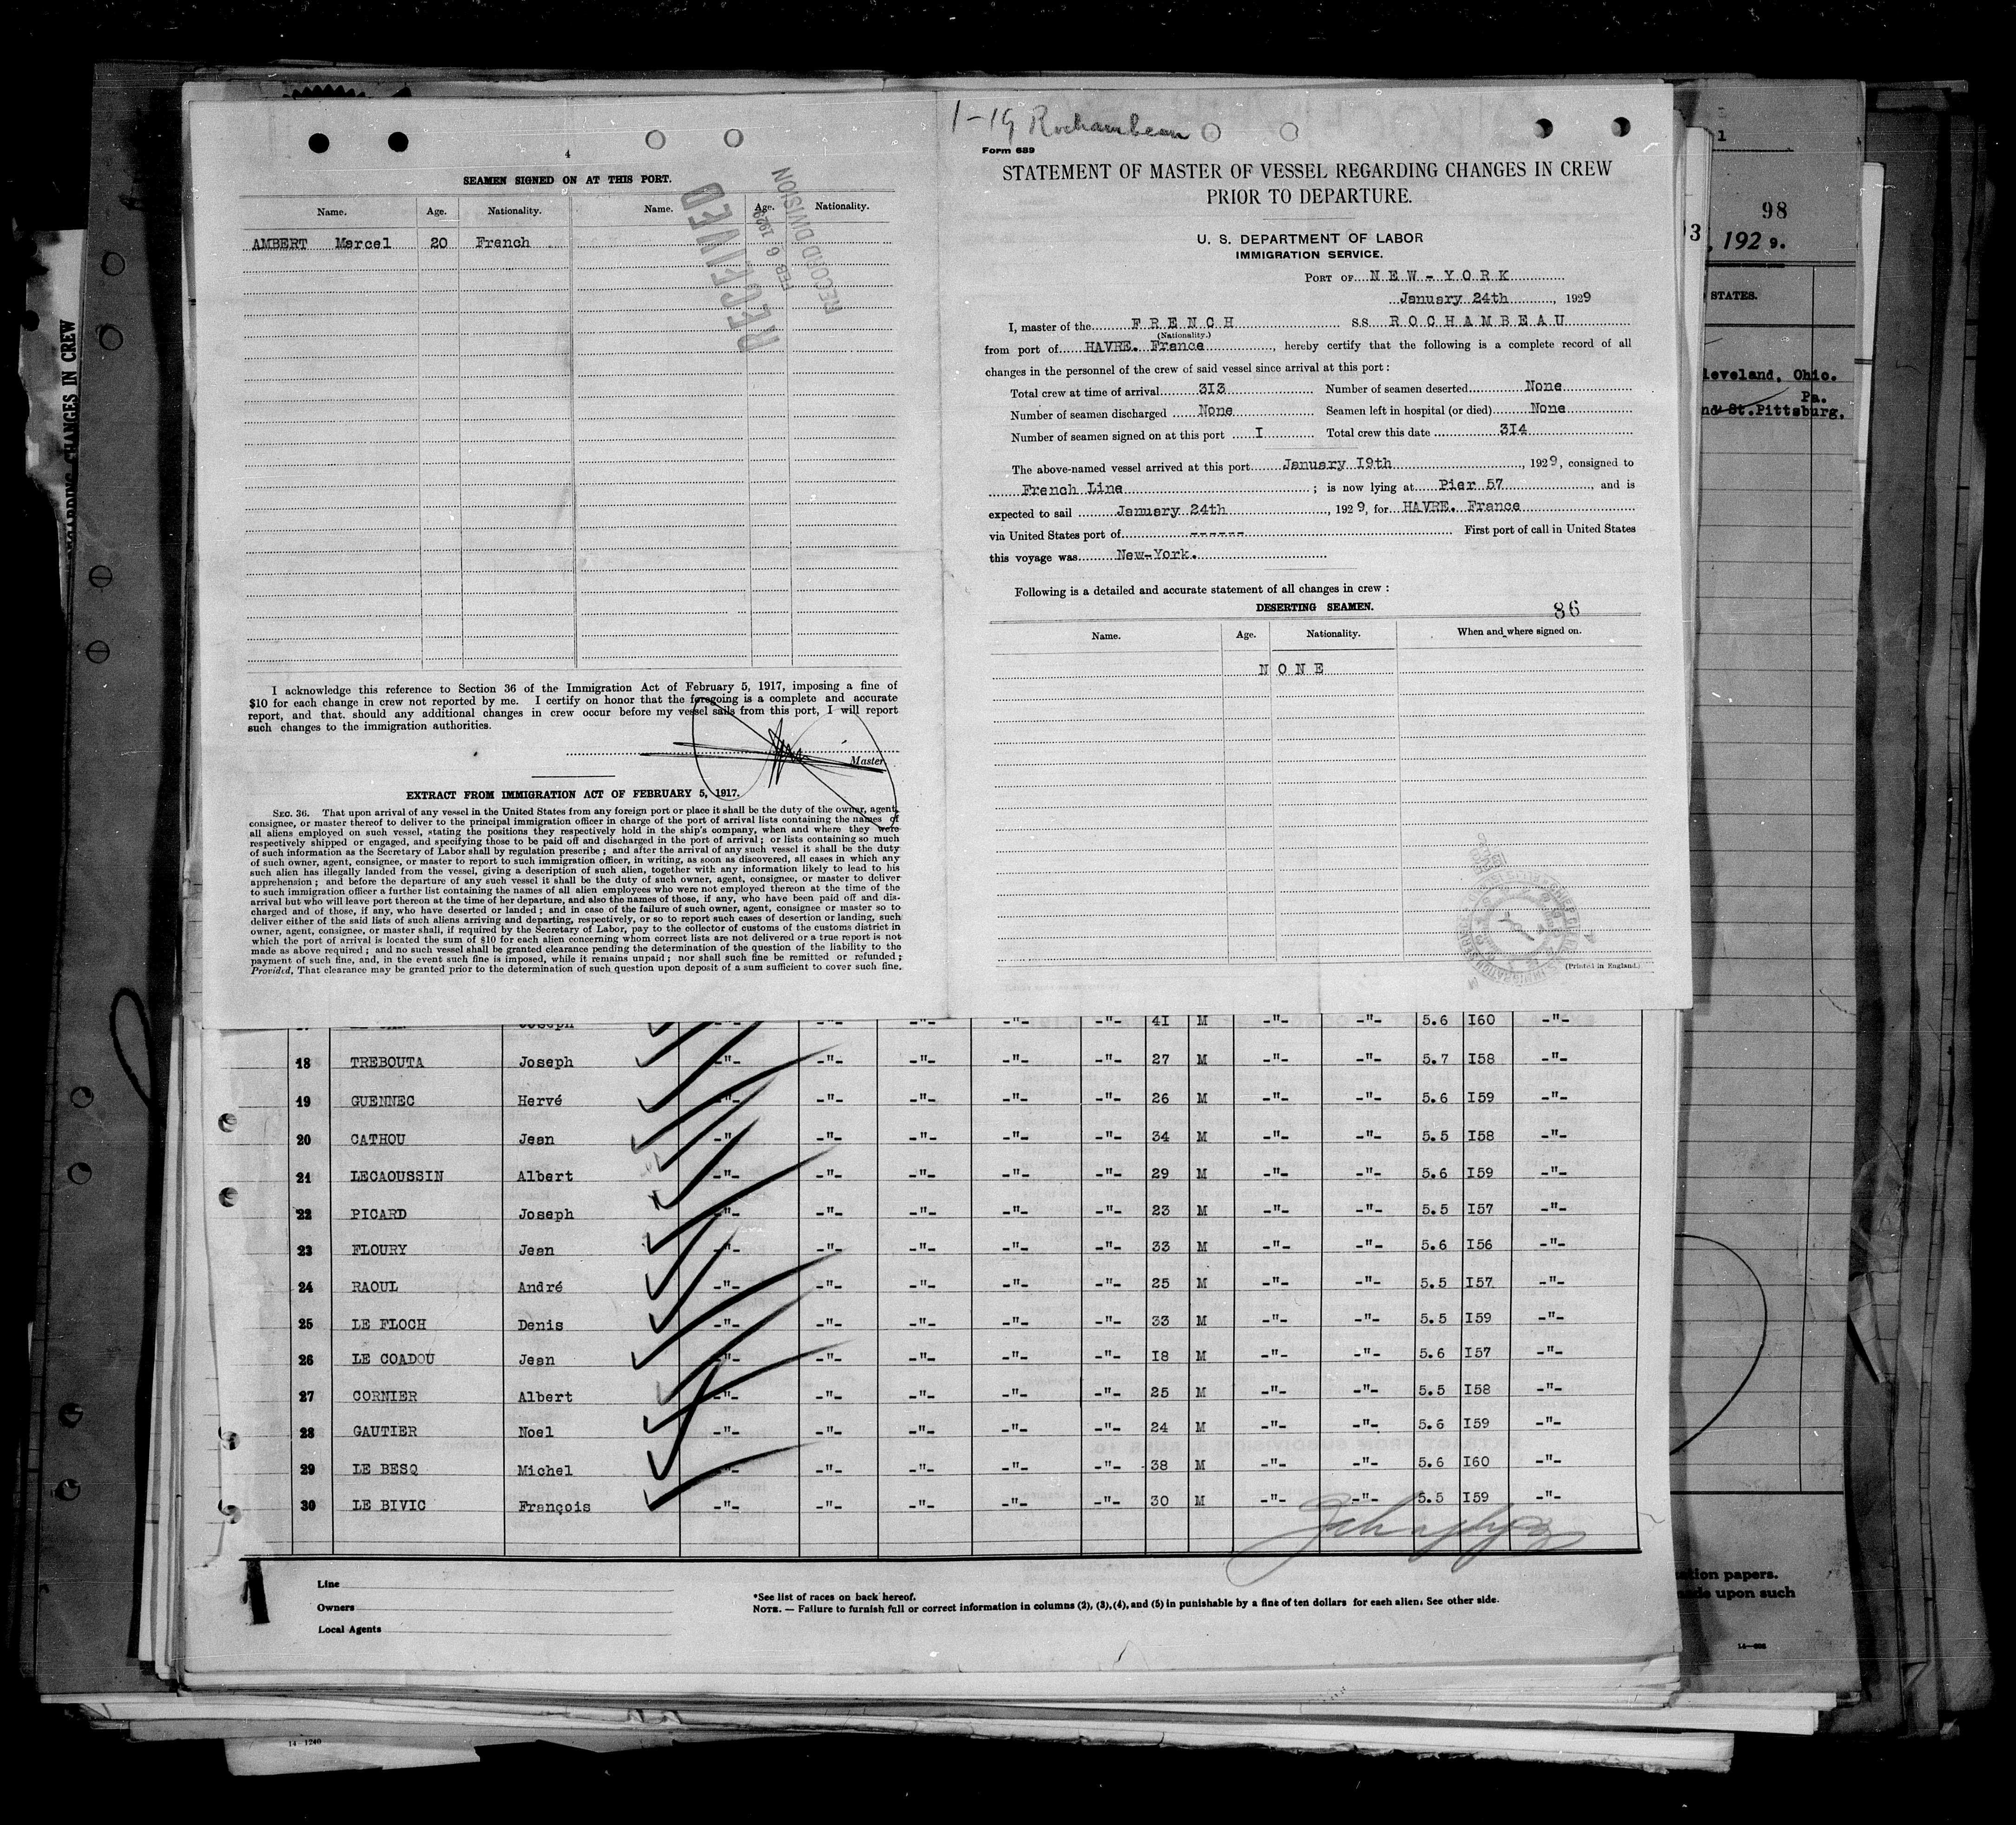 4
SEAMEN SIGNED ON AT THIS PORT.
Name. Age. Nationality. Name. Age. Nationality.
AMBERT Marcel 20 French
RECEIVED
FEB 6 1929
RECORD DIVISION
I acknowledge this reference to Section 36 of the Immigration Act of February 5, 1917, imposing a fine of
$10 for each change in crew not reported by me. I certify on honor that the foregoing is a complete and accurate
report, and that. should any additional changes in crew occur before my vessel sails from this port, I will report
such changes to the immigration authorities.
Master
EXTRACT FROM IMMIGRATION ACT OF FEBRUARY 5, 1917.
SEC. 36. That upon arrival of any vessel in the United States from any foreign port or place it shall be the duty of the owner, agent,
consignee, or master thereof to deliver to the principal immigration officer in charge of the port of arrival lists containing the names of
all aliens employed on such vessel, stating the positions they respectively hold in the ship's company, when and where they were
respectively shipped or engaged, and specifying those to be paid off and discharged in the port of arrival; or lists containing so much
of such information as the Secretary of Labor shall by regulation prescribe; and after the arrival of any such vessel it shall be the duty
of such owner, agent, consignee, or master to report to such immigration officer, in writing, as soon as discovered, all cases in which any
such alien has illegally landed from the vessel, giving a description of such alien, together with any information likely to lead to his
apprehension; and before the departure of any such vessel it shall be the duty of such owner, agent, consignee, or master to deliver
to such immigration officer a further list containing the names of all alien employees who were not employed thereon at the time of the
arrival but who will leave port thereon at the time of her departure, and also the names of those, if any, who have been paid off and dis-
charged and of those, if any, who have deserted or landed; and in case of the failure of such owner, agent, consignee or master so to
deliver either of the said lists of such aliens arriving and departing, respectively, or so to report such cases of desertion or landing, such
owner, agent, consignee, or master shall, if required by the Secretary of Labor, pay to the collector of customs of the customs district in
which the port of arrival is located the sum of $10 for each alien concerning whom correct lists are not delivered or a true report is not
made as above required; and no such vessel shall be granted clearance pending the determination of the question of the liability to the
payment of such fine, and, in the event such fine is imposed, while it remains unpaid; nor shall such fine be remitted or refunded;
Provided, That clearance may be granted prior to the determination of such question upon deposit of a sum sufficient to cover such fine.
1-19 Rochambeau
Form 689
STATEMENT OF MASTER OF VESSEL REGARDING CHANGES IN CREW
PRIOR TO DEPARTURE.
U. S. DEPARTMENT OF LABOR
IMMIGRATION SERVICE.
PORT OF NEW-YORK
January 24th, 1929
I, master of the FRENCH S.S. ROCHAMBEAU
(Nationality.)
from port of HAVRE. France, hereby certify that the following is a complete record of all
changes in the personnel of the crew of said vessel since arrival at this port:
Total crew at time of arrival 3I3 Number of seamen deserted None
Number of seamen discharged None Seamen left in hospital (or died) None
Number of seamen signed on at this port I Total crew this date 3I4
The above-named vessel arrived at this port January I9th, 1929, consigned to
French Line; is now lying at Pier 57, and is
expected to sail January 24th, 1929, for HAVRE. France
via United States port of ------ First port of call in United States
this voyage was New-York.
Following is a detailed and accurate statement of all changes in crew:
DESERTING SEAMEN. 86
Name. Age. Nationality. When and where signed on.
NONE
(Printed in England.)
Joseph -"- -"- -"- -"- -"- 4I M -"- -"- 5.6 I60 -"-
18 TREBOUTA Joseph -"- -"- -"- -"- -"- 27 M -"- -"- 5.7 I58 -"-
19 GUENNEC Hervé -"- -"- -"- -"- -"- 26 M -"- -"- 5.6 I59 -"-
20 CATHOU Jean -"- -"- -"- -"- -"- 34 M -"- -"- 5.5 I58 -"-
21 LECAOUSSIN Albert -"- -"- -"- -"- -"- 29 M -"- -"- 5.6 I59 -"-
22 PICARD Joseph -"- -"- -"- -"- -"- 23 M -"- -"- 5.5 I57 -"-
23 FLOURY Jean -"- -"- -"- -"- -"- 33 M -"- -"- 5.6 I56 -"-
24 RAOUL André -"- -"- -"- -"- -"- 25 M -"- -"- 5.5 I57 -"-
25 LE FLOCH Denis -"- -"- -"- -"- -"- 33 M -"- -"- 5.5 I59 -"-
26 LE COADOU Jean -"- -"- -"- -"- -"- I8 M -"- -"- 5.6 I57 -"-
27 CORNIER Albert -"- -"- -"- -"- -"- 25 M -"- -"- 5.5 I58 -"-
28 GAUTIER Noel -"- -"- -"- -"- -"- 24 M -"- -"- 5.6 I59 -"-
29 LE BESQ Michel -"- -"- -"- -"- -"- 38 M -"- -"- 5.6 I60 -"-
30 LE BIVIC François -"- -"- -"- -"- -"- 30 M -"- -"- 5.5 I59 -"-
Line
Owners
Local Agents
*See list of races on back hereof.
NOTE. — Failure to furnish full or correct information in columns (2), (3), (4), and (5) in punishable by a fine of ten dollars for each alien. See other side.
1
98
3, 1929.
STATES.
leveland, Ohio.
Pa.
St.Pittsburg.
papers.
upon such
14 1240
CHANGES IN CREW